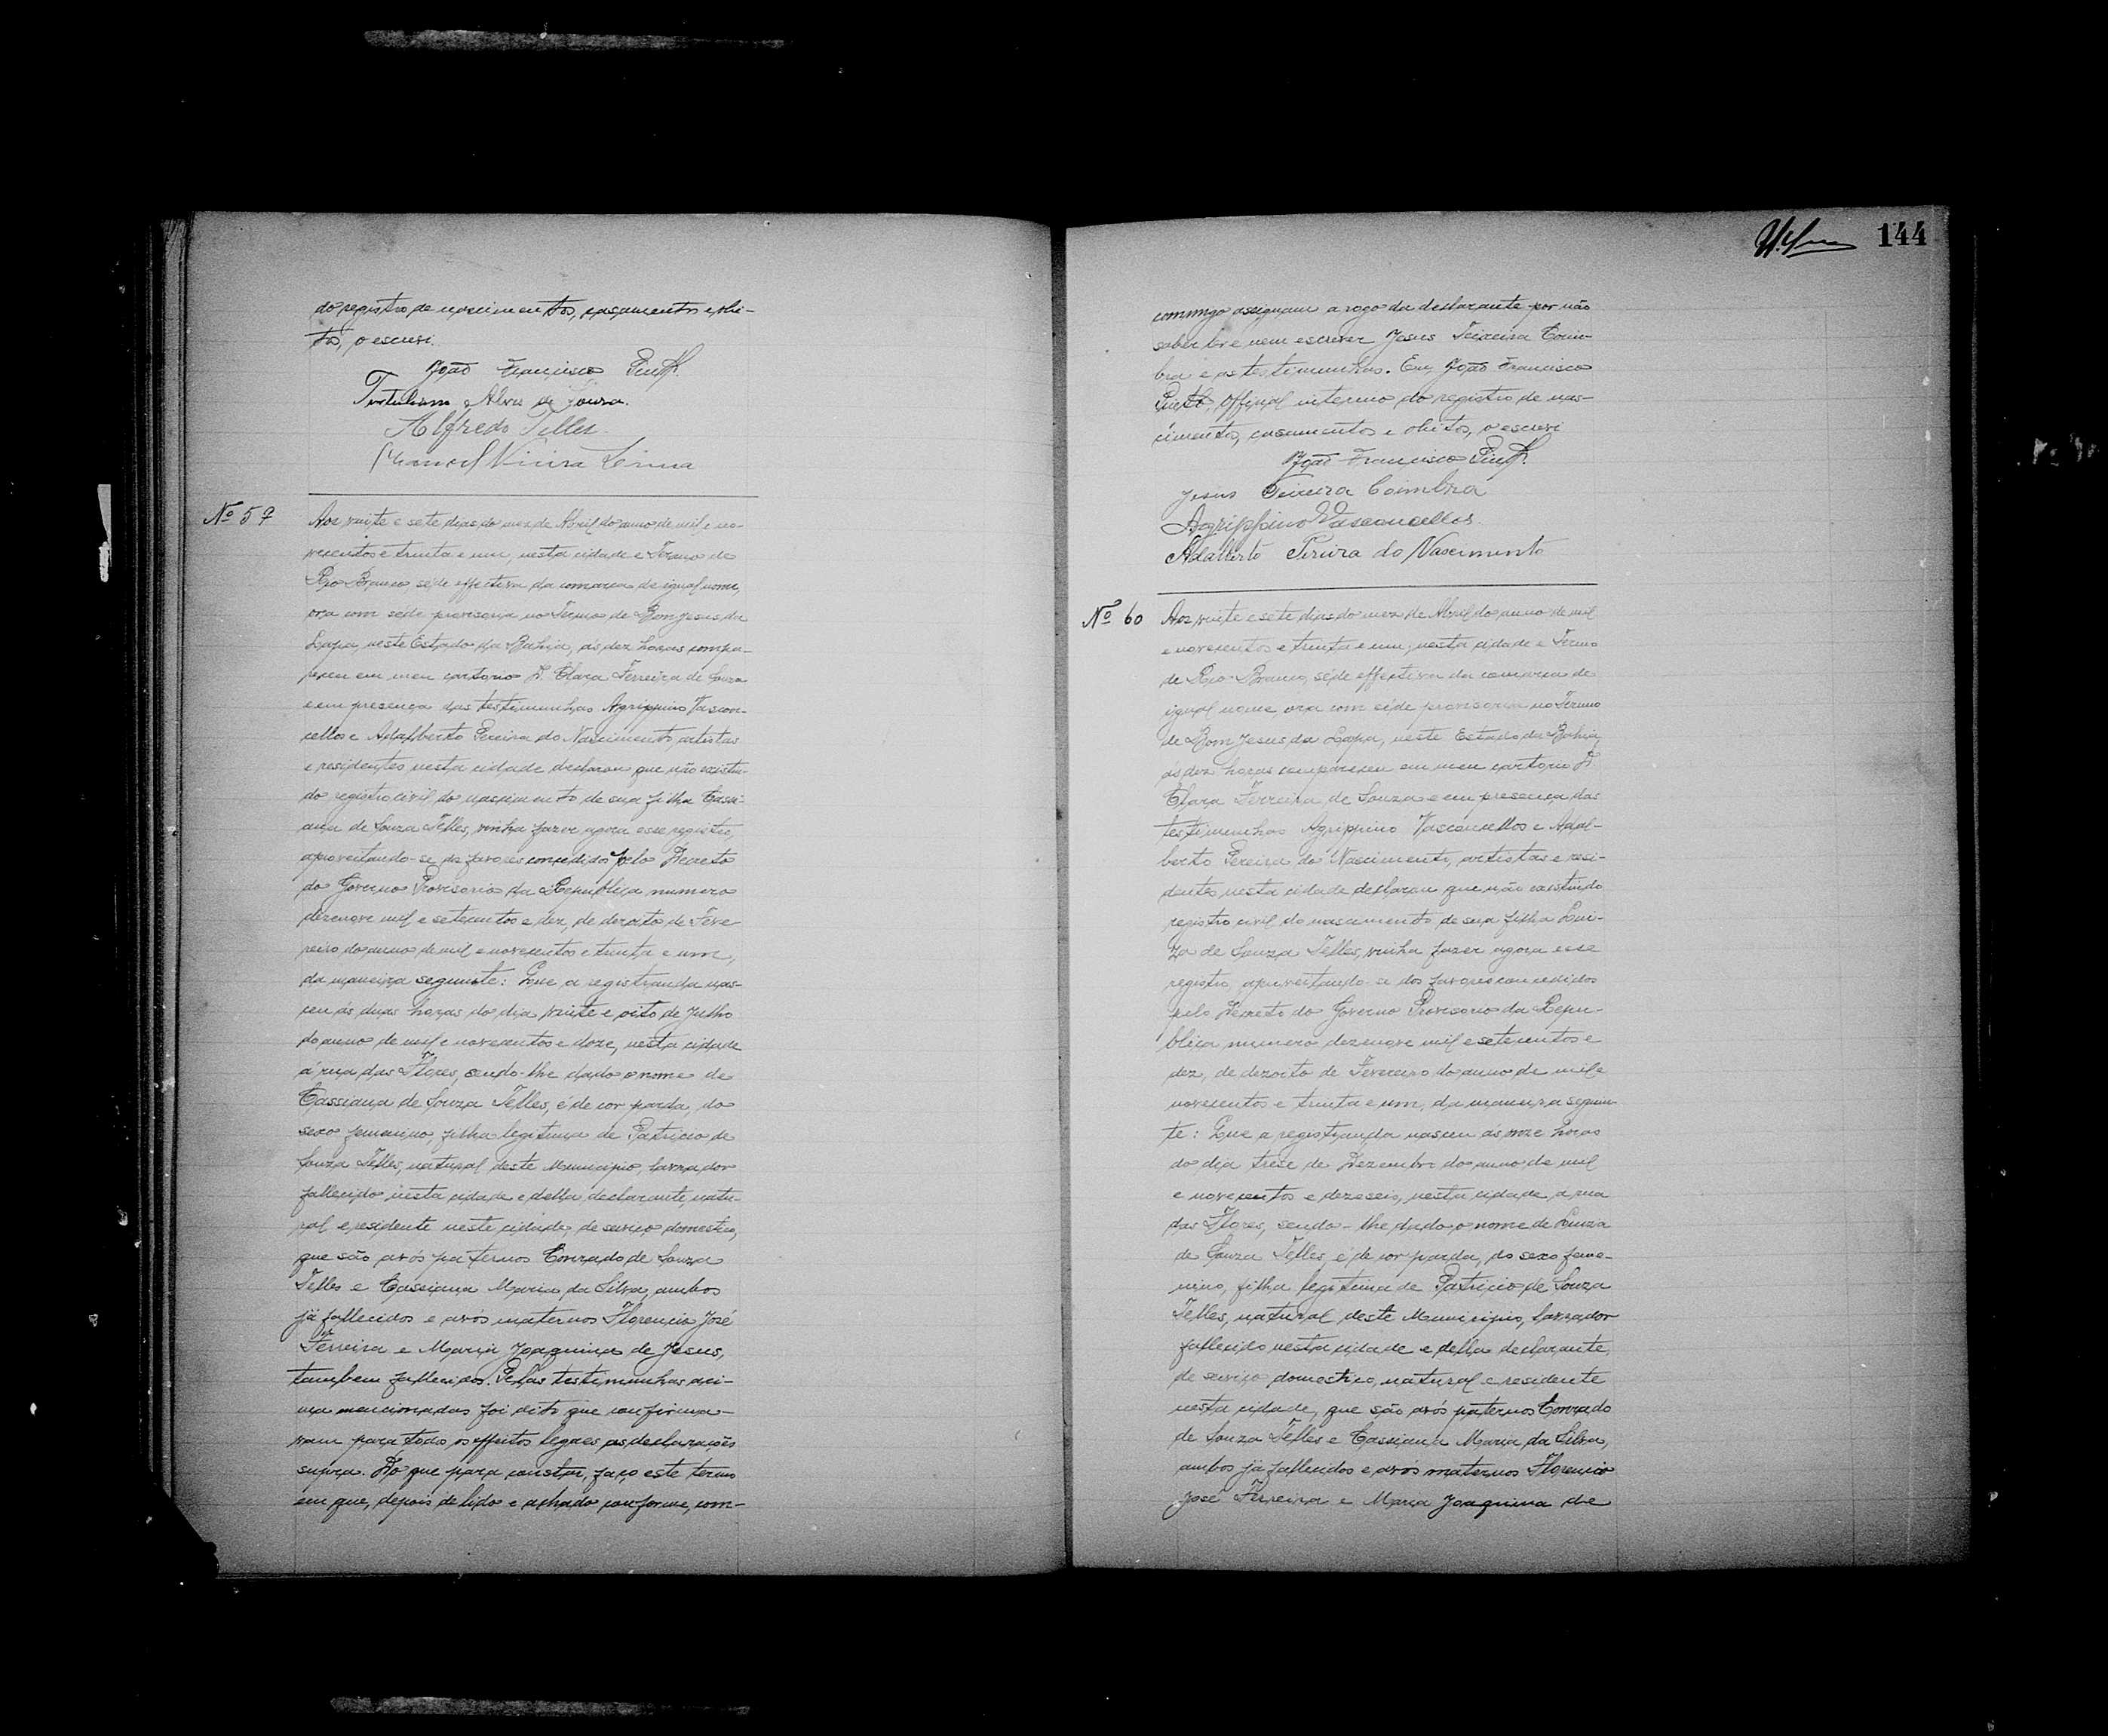 do registro de nascimentos, casamentos e obi-
tos, o escrevi.
João Francisco Pinto.
Tertuliano Alves de Souza.
Alfredo Telles
Manoel Vieira Lima
Nº 59
Aos vinte e sete dias do mez de Abril do anno de mil e no-
vecentos e trinta e um, nesta cidade e Termo de
Rio Branco, séde effectiva da comarca de igual nome,
ora com séde provisoria no Termo de Bom Jesus da
Lapa, neste Estado da Bahia, ás dez horas compa-
receu em meu cartorio D. Clara Ferreira de Souza
e em presença das testimunhas Agrippino Vascon-
cellos e Adalberto Pereira do Nascimento, artistas
e residentes nesta cidade declarou que não existin-
do registro civil do nascimento de sua filha Cassi-
ana de Souza Telles, vinha fazer agora esse registro,
aproveitando-se dos favores concedidos pelo Decreto
do Governo Provisorio da Republica numero
dezenove mil e setecentos e dez, de dezoito de Feve
reiro do anno de mil e novecentos e trinta e um,
da maneira seguinte: Que a registranda nas-
ceu ás duas horas do dia vinte e oito de Julho
do anno de mil e novecentos e doze, nesta cidade
á rua das Flores, sendo-lhe dado o nome de
Cassiana de Souza Telles, é de cor parda, do
sexo femenino, filha legitima de Patricio de
Souza Telles, natural deste Municipio, lavrador
fallecido nesta cidade e della declarante, natu-
ral e residente neste cidade, de serviço domestico,
que são avós paternos Conrado de Souza
Telles e Cassiana Maria da Silva, ambos
já fallecidos e avós maternos Florencio José
Ferreira e Maria Joaquina de Jesus,
tambem fallecidos. Pelas testimunhas aci-
ma mencionadas foi dito que confirma-
vam para todos os effeitos legaes as declarações
supra. Do que para constar, faço este termo
em que, depois de lido e achado conforme, com-
144
commigo assignam a rogo da declarante por não
saber ler e nem escrever Jesus Teixeira Coim-
bra e as testimunhas. Eu, João Francisco
Pinto, Official interino do registro de nas-
cimentos, casamentos e obitos, o escrevi
João Francisco Pinto.
Jesus Teixeira Coimbra
Agrippino Vasconcellos.
Adalberto Pereira do Nascimento
Nº 60
Aos vinte e sete dias do mez de Abril do anno de mil
e novecentos e trinta e um, nesta cidade e Termo
de Rio-Branco, séde effectiva da comarca de
igual nome, ora com séde provisoria no Termo
de Bom Jesus da Lapa, neste Estado da Bahia,
ás dez horas compareceu em meu cartorio D.
Clara Ferreira de Souza e em presença das
testimunhas Agrippino Vasconcellos e Adal-
berto Pereira do Nascimento, artistas e resi-
dentes nesta cidade declarou que não existindo
registro civil do nascimento de sua filha Lui-
za de Souza Telles, vinha fazer agora esse
registro, aproveitando-se dos favores concedidos
pelo Decreto do Governo Provisorio da Repu-
blica numero dezenove mil e setecentos e
dez, de dezoito de Fevereiro do anno de mil e
novecentos e trinta e um, da maneira seguin-
te: Que a registranda nasceu ás onze horas
do dia trese de Dezembro do anno de mil
e novecentos e dezeseis, nesta cidade, á rua
das Flores, sendo-lhe dado o nome de Luiza
de Souza Telles, é de cor parda, do sexo feme-
nino, filha legitima de Patricio de Souza
Telles, natural deste Municipio, lavrador
fallecido nesta cidade e della declarante,
de serviço domestico, natural e residente
nesta cidade, que são avós paternos Conrado
de Souza Telles e Cassiana Maria da Silva,
ambos já fallecidos e avós maternos Florencio
José Ferreira e Maria Joaquina de